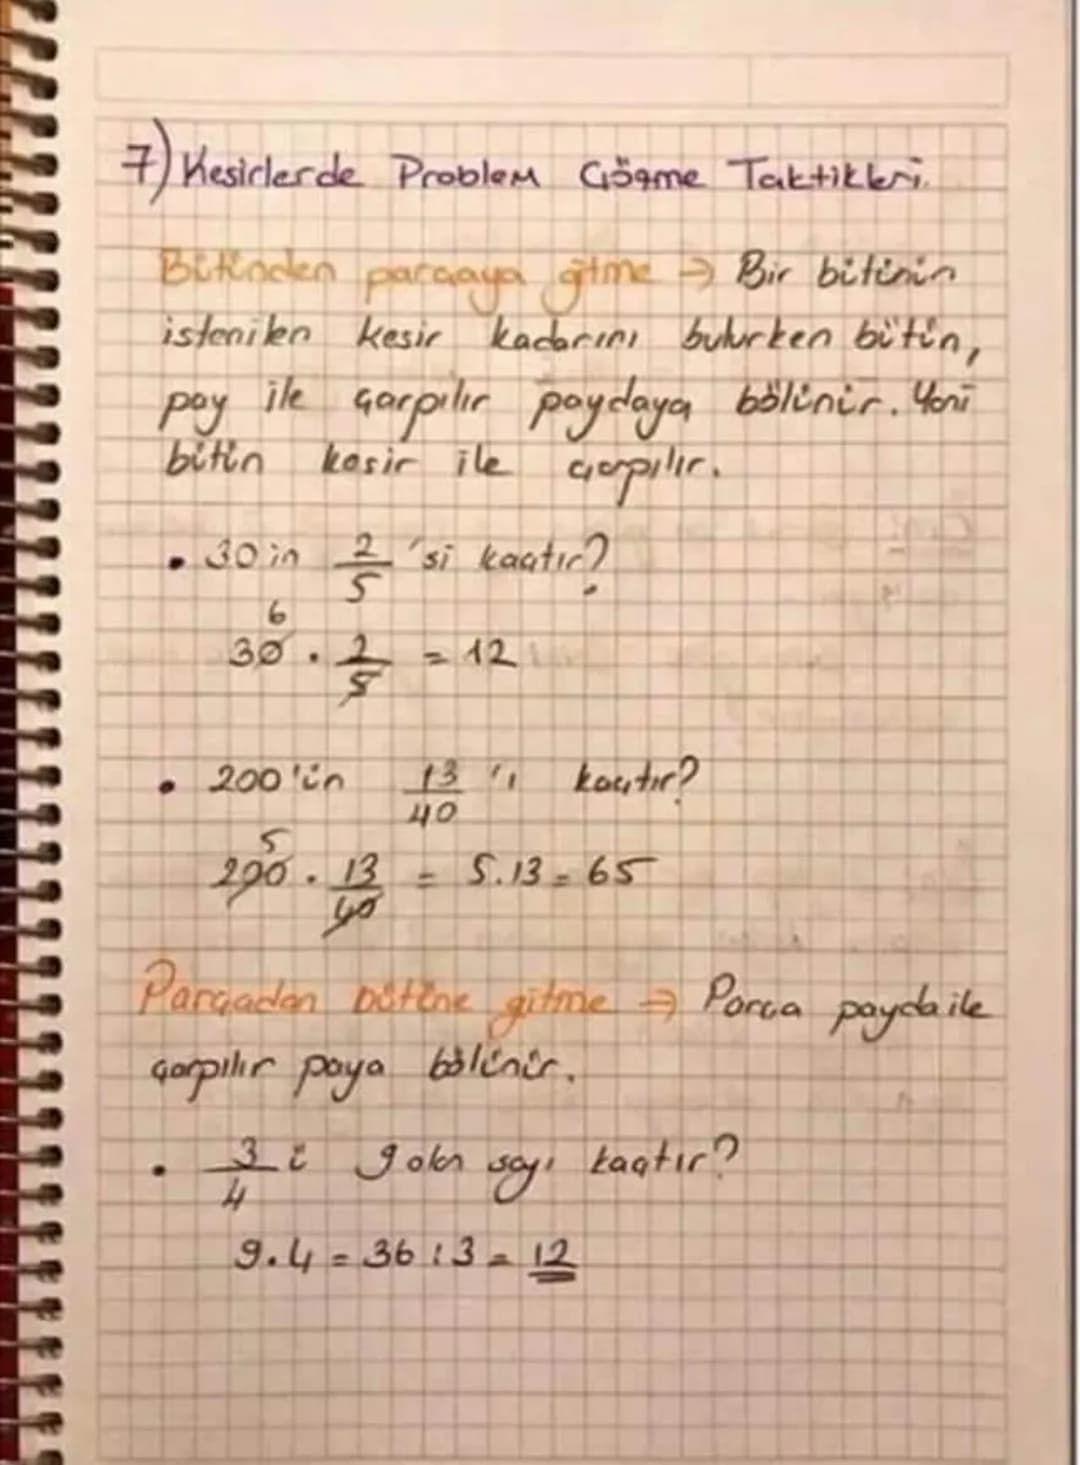 7) Kesirlerde Problem Çözme Taktikleri.
Bütünden parçaya gitme → Bir bütünün
istenilen kesir kadarını bulurken bütün,
pay ile çarpılır paydaya bölünür. Yani
bütün kesir ile çarpılır.
• 30'in 2/5 'si kaçtır?
6
30 . 2/5 = 12
• 200'ün 13/40 'ı kaçtır?
5
200 . 13/40 = 5.13 = 65
Parçadan bütüne gitme → Parça payda ile
çarpılır paya bölünür.
• 3/4 ü 9 olan sayı kaçtır?
9.4 = 36 : 3 = 12